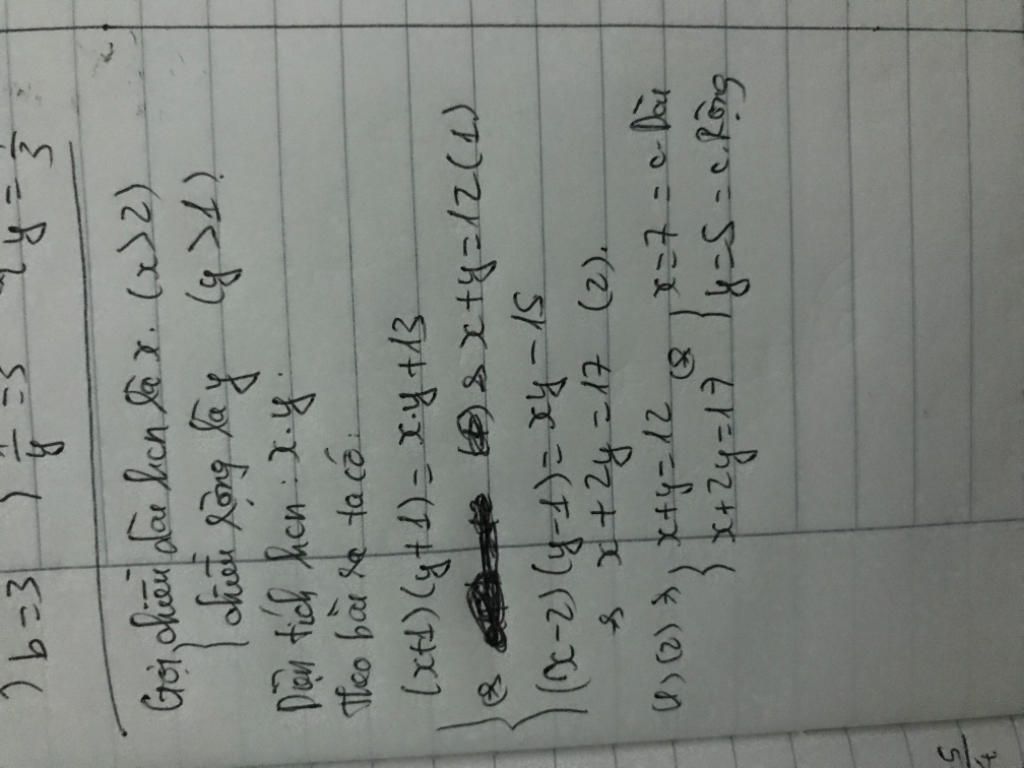 ) b = 3 ) 1/y = 3 y = 1/3
Gọi chiều dài hcn là x. (x>2)
chiều rộng là y (y>1).
Diện tích hcn: x.y.
Theo bài ra ta có:
(x+1)(y+1) = x.y+13
⇔ x+y=12 (1)
(x-2)(y-1) = xy-15
⇔ x+2y=17 (2).
(1)(2) ⇒ x+y=12 ⇔ x=7 = c.Dài
x+2y=17 y=5 = c.Rộng